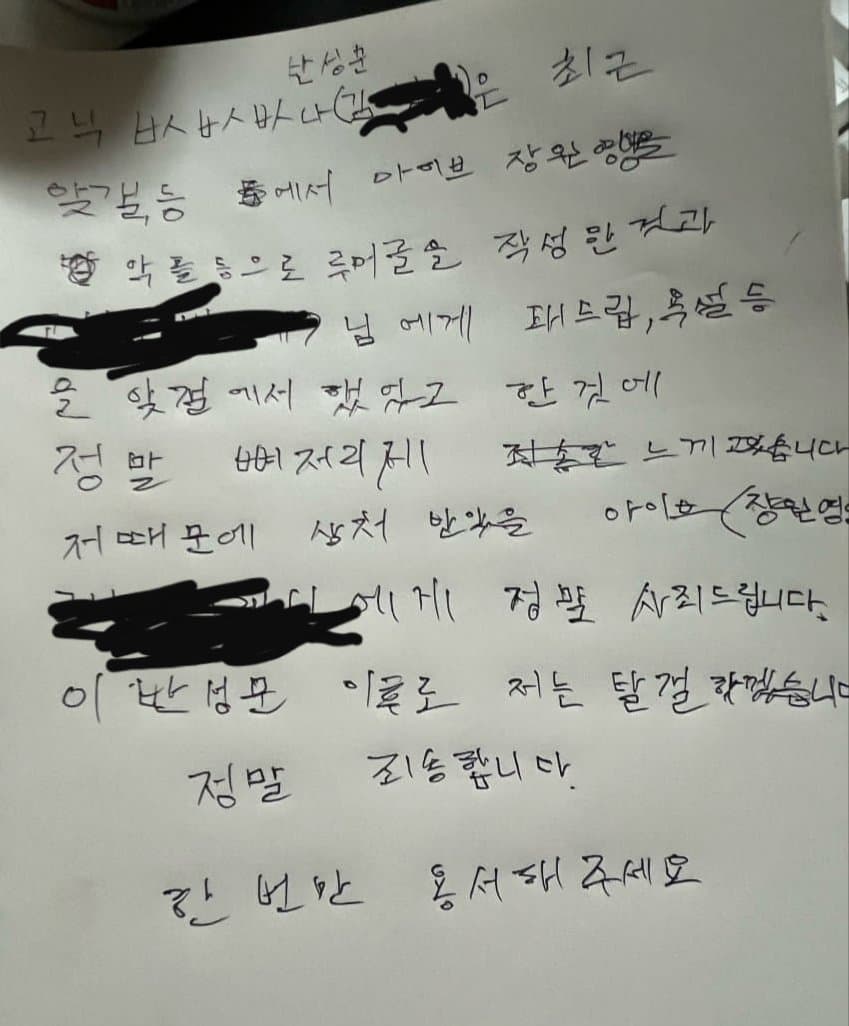 반성문
고닉 ㅂㅅㅂㅅ바나(김은 최근
앚갤,등 에서 아이브 장원영을
악플등으로 루머글을 작성한것과
님에게 패드립,욕설등
을 앚갤에서 했었고 한것에
정말 뼈저리제 느끼고있습니다
저때문에 상처 받았을 아이브(장원영
에게 정말 사죄드립니다.
이 반성문 이후로 저는 탈갤하겠습니다
정말 죄송합니다.
한번만 용서해주세요